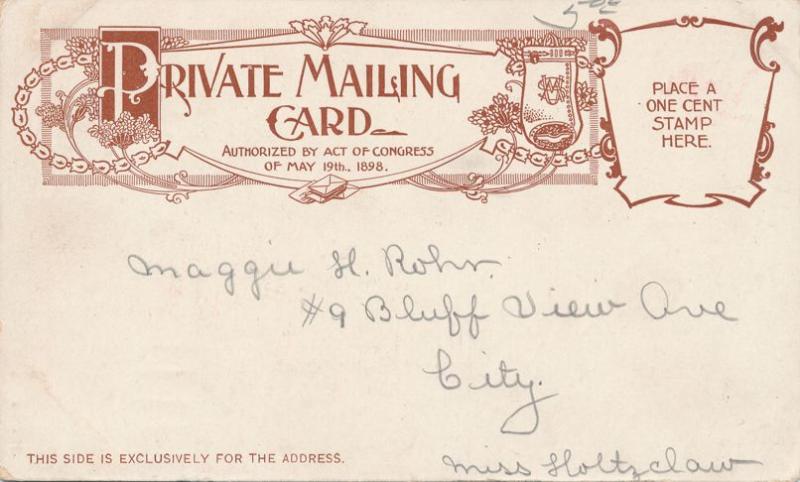 5.00
PRIVATE MAILING
CARD
AUTHORIZED BY ACT OF CONGRESS
OF MAY 19th., 1898.
PLACE A
ONE CENT
STAMP
HERE.
Maggie H. Rohr.
#9 Bluff View Ave
City.
THIS SIDE IS EXCLUSIVELY FOR THE ADDRESS.
Miss Holtzclaw